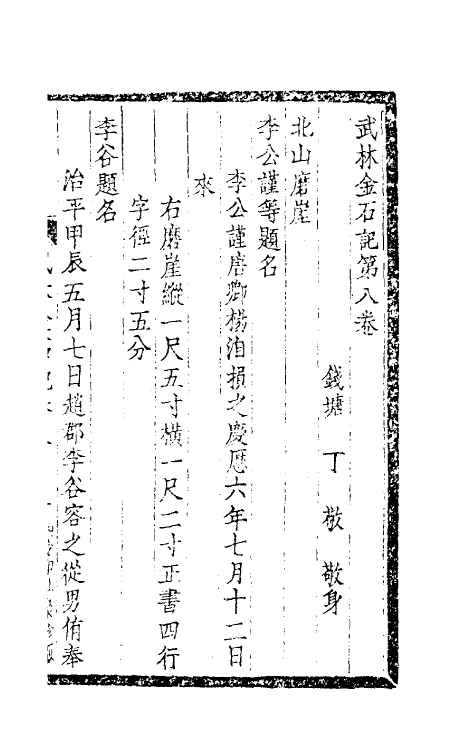 武林金石記第八卷
錢塘 丁敬 敬身
北山磨崖
李公謹等題名
李公謹唐卿楊洎損之慶厯六年七月十二日
來
右磨崖縱一尺五寸橫一尺二寸正書四行
字徑二寸五分
李谷題名
治平甲辰五月七日趙郡李谷容之從男侑奉